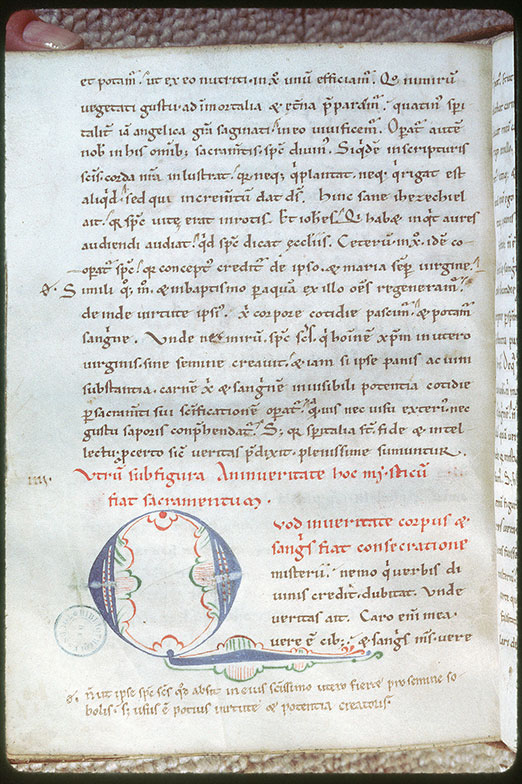 et potam᷒. ut ex eo nutriti in x̄ unū efficiam᷒. Q̄ nimirū
vegetati gustu. ad īmortalia & etna p̄param᷒. quatin᷒ spi
talit᷒ iā angelica grā saginati. in eo vivificem᷒. Opat᷒ autē
nob᷒ in his omīb᷒ sacramtis. spc̄ divin᷒. Siqdē in scripturis
scīs. corda nr̄a inlustrat. qr neq᷒ q plantat. neq᷒ q rigat est
aliqd. sed qui incremtū dat ds̄. Hinc sane ihezechiel
ait. qr spc̄ vitę erat in rotis. Et ioh̄es. Q̄ habæ inqt aures
audiendi audiat. qd spc̄ dicat ęccliis. Ceterū in x̄. idē co-
opat᷒ spc̄. qr concept᷒ credit᷒ de ipso. & maria semp virgine.
Simili qm̄. & in baptismo p aquā ex illo om̄s regeneram᷒.
deinde virtute ipsi᷒. x̄ corpore cotidie pascim᷒. & potam᷒
sangne. Unde nec mirū. spc̄ scs̄. q hoīnem xpm in utero
virginis. sine semine creavit. & iam si ipse panis ac vini
substantia. carnē x̄ & sangnē invisibili potentia cotidie
p sacramti sui scīficationē opat᷒. qmvis nec visu exteri᷒. nec
gustu saporis conphendat᷒. S; qr spitalia st̄. fide & intel-
lectu. p certo sic veritas pdixit. plenissime sumuntur.
IIII. Utrū sub figura. An in veritate hoc mysticū
fiat sacramentum.
Quod in veritate corpus &
sangs fiat consecratione
misterii. nemo q verbis di
vinis credit. dubitat. Unde
veritas ait. Caro enī mea.
vere ē cib᷒. & sangs ms̄. vere
n̄ ut ipse spc̄ scs̄ qd absit in eius scīssimo utero fieret pro semine so
bolis. s; usus ē potius virtute & potentia creatoris.